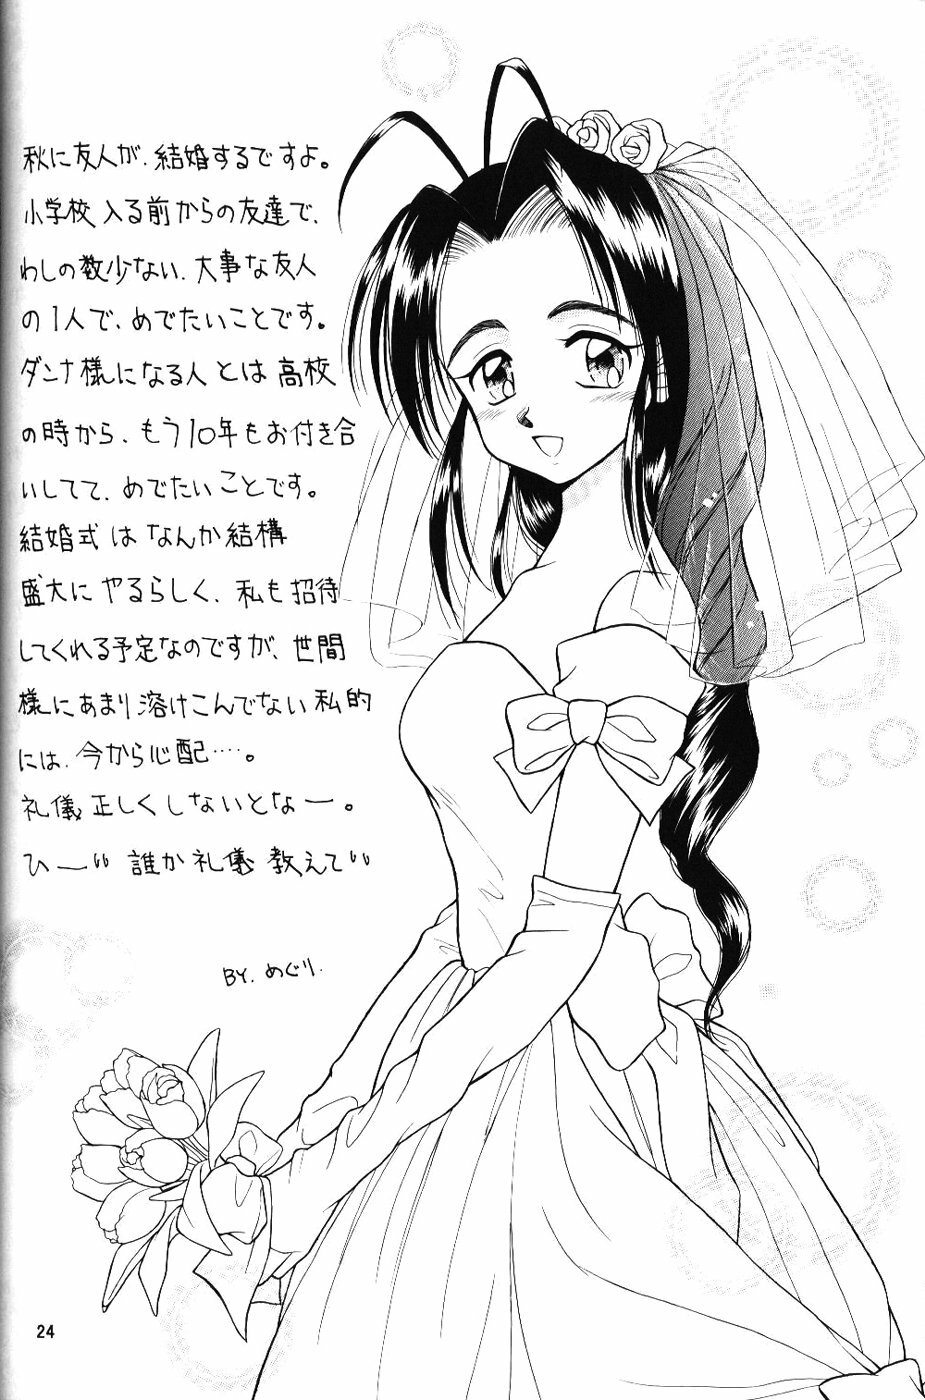 秋に友人が、結婚するですよ。
小学校入る前からの友達で、
わしの数少ない、大事な友人
の1人で、めでたいことです。
ダンナ様になる人とは高校
の時から、もう10年もお付き合
いしてて、めでたいことです。
結婚式はなんか結構
盛大にやるらしく、私も招待
してくれる予定なのですが、世間
様にあまり溶けこんでない私的
には、今から心配…。
礼儀正しくしないとなー。
ひー〃誰か礼儀教えて〃
BY. めぐり.
24